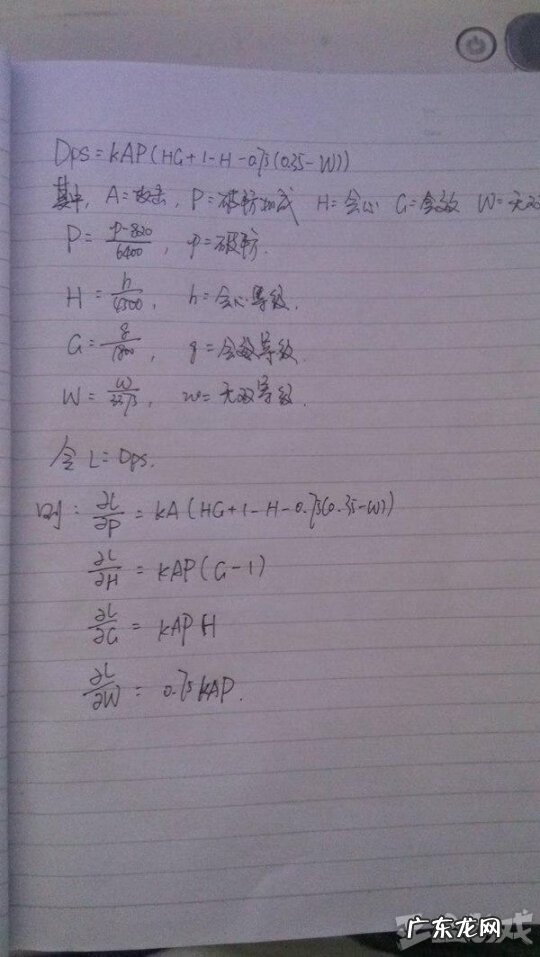 Dps = kAP(HG+1-H-0.75(0.35-W))
其中, A=攻击, P=破防加成 H=会心 G=会效 W=无双
P = p-820/6400, p=破防.
H = h/4500, h=会心等级.
G = g/1800, g=会效等级.
W = w/3273, w=无双等级.
令 L=Dps.
则: ∂L/∂P = kA(HG+1-H-0.75(0.35-W))
∂L/∂H = kAP(G-1)
∂L/∂G = kAPH
∂L/∂W = 0.75kAP.
广东龙网